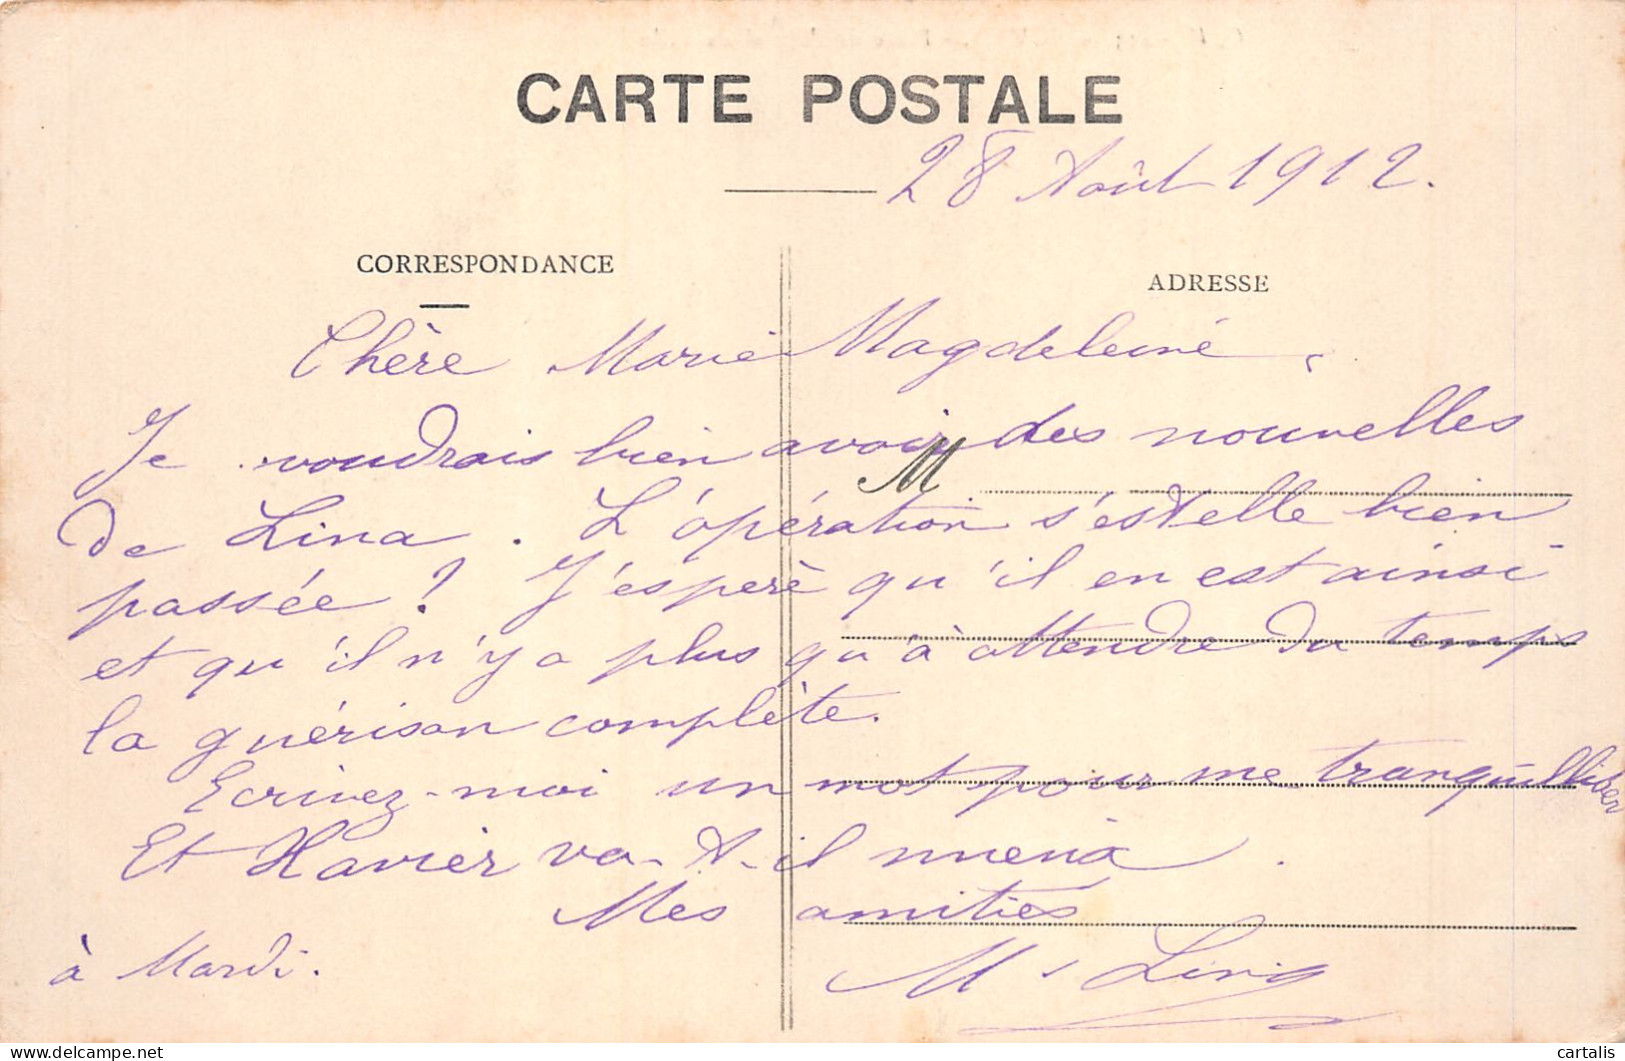 CARTE POSTALE
28 Août 1912.
CORRESPONDANCE
ADRESSE
Chère Marie Magdeleine,
Je voudrais bien avoir des nouvelles
M
de Lina. L'opération s'est elle bien
passée ? J'espère qu'il en est ainsi
et qu'il n'y a plus qu'à attendre du temps
la guérison complète.
Ecrivez-moi un mot pour me tranquilliser
Et Xavier va-t-il mieux.
Mes amitiés
à Mardi.
M
cartalis